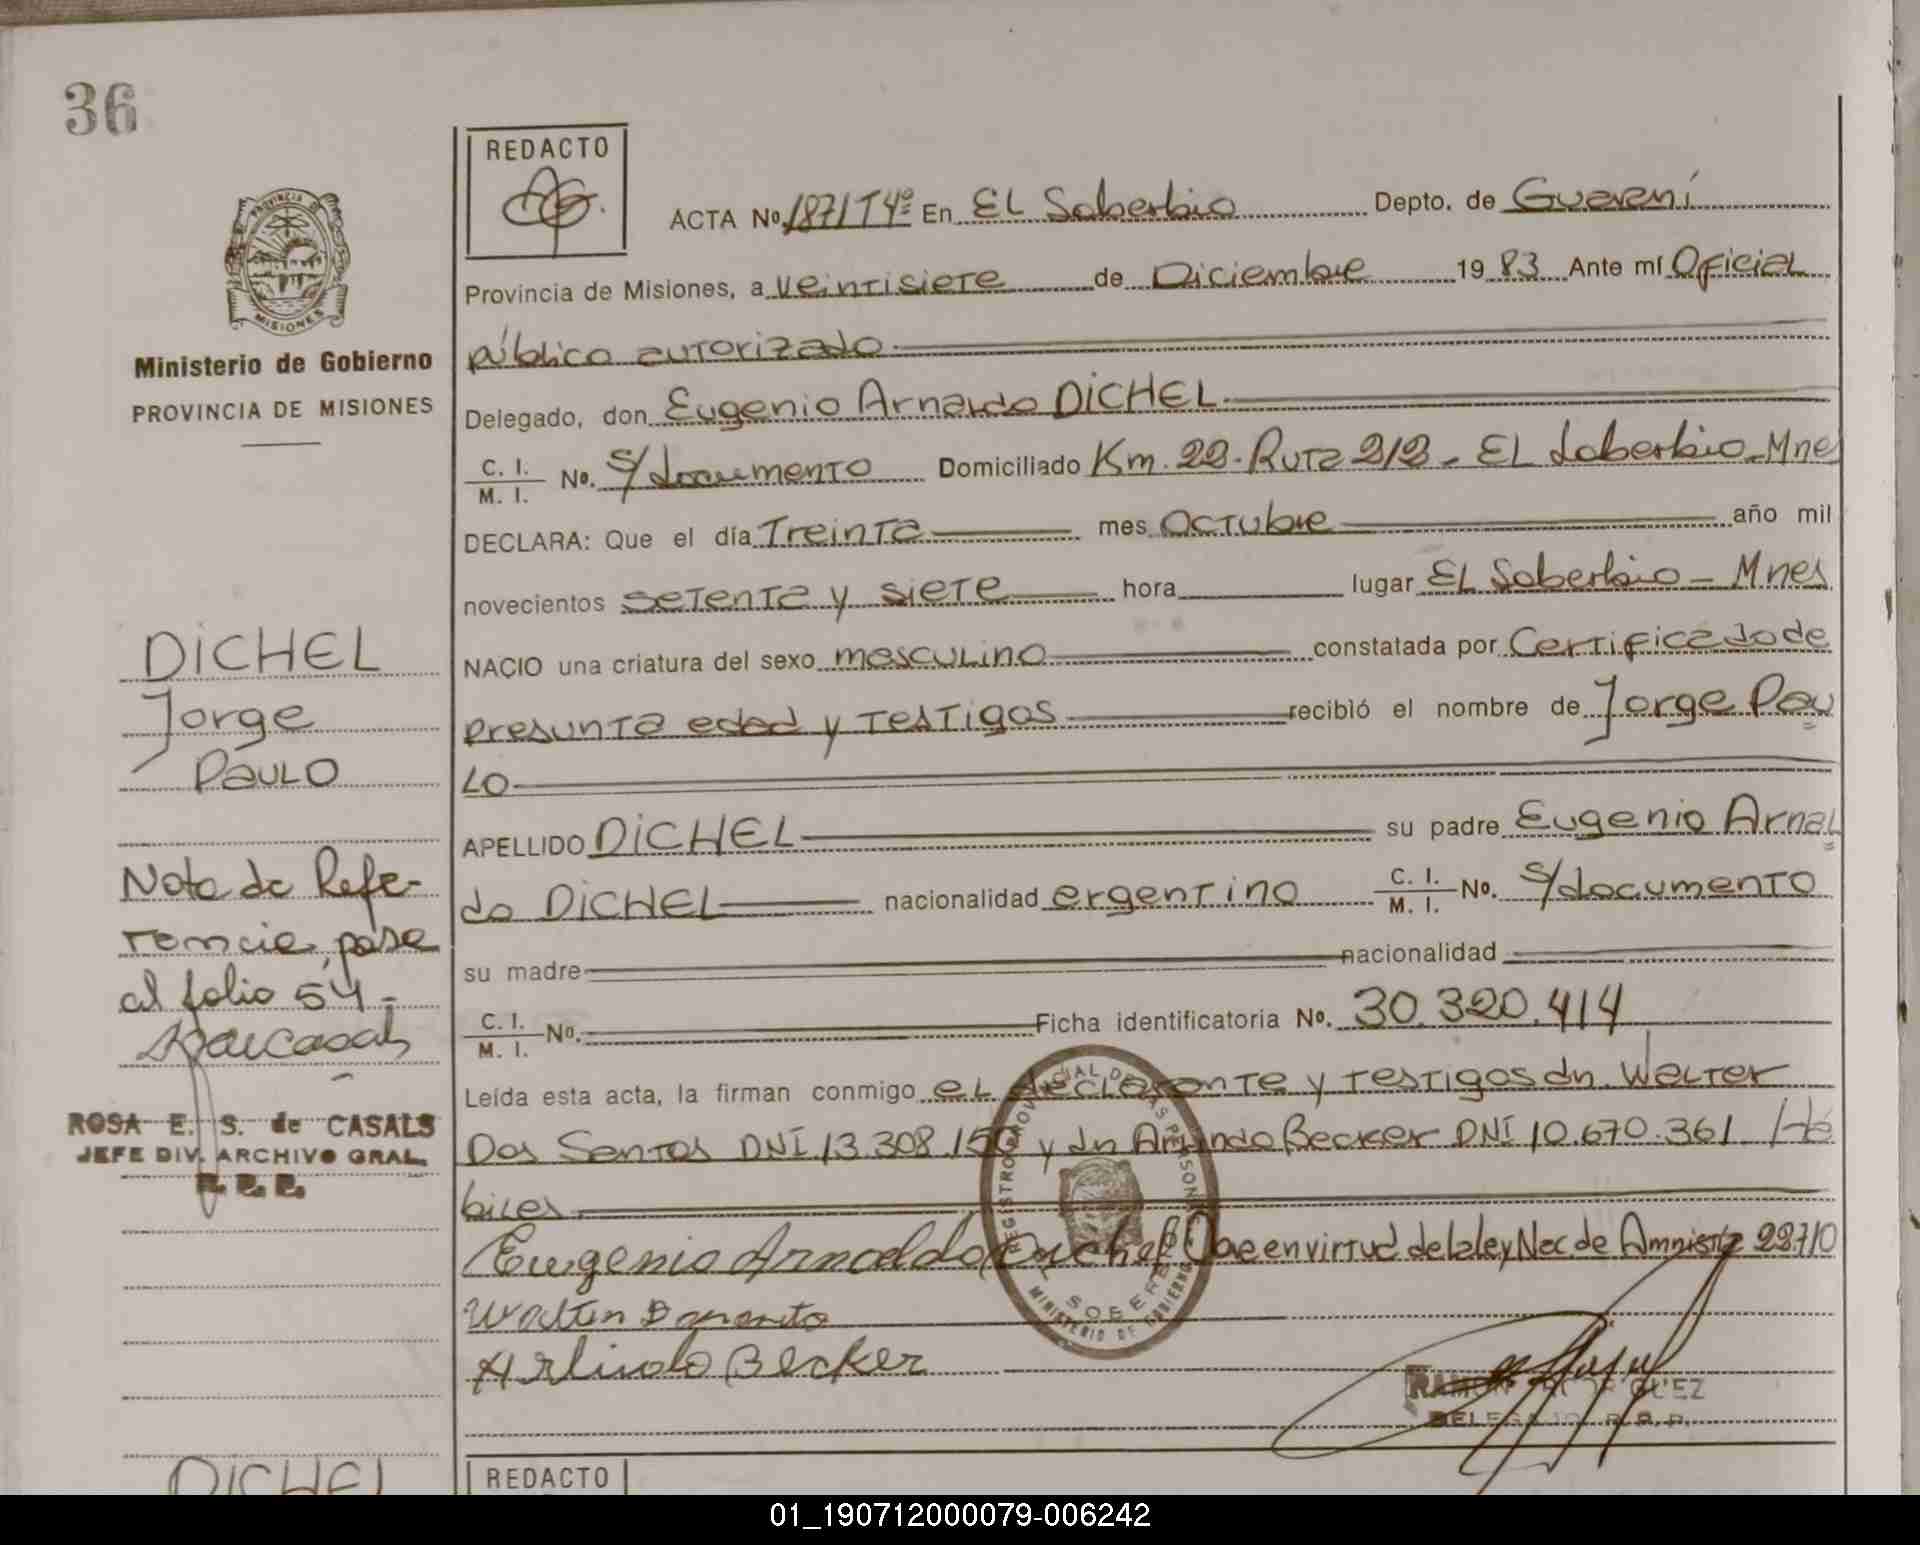 36
REDACTO
ACTA No. 1871 T4º En EL Soberbio Depto. de Guaraní
Provincia de Misiones, a veintisiete de Diciembre 1983 Ante mí Oficial
público autorizado
Delegado, don Eugenio Arnaldo DICHEL
C. I. / M. I. No. S/documento Domiciliado Km. 22 - Ruta 212 - EL Soberbio - Mnes
DECLARA: Que el día Treinta mes Octubre año mil
novecientos setenta y siete hora lugar EL Soberbio - Mnes
NACIO una criatura del sexo masculino constatada por Certificado de
presunta edad y testigos recibió el nombre de Jorge Pau
LO
APELLIDO DICHEL su padre Eugenio Arnal
do DICHEL nacionalidad argentino C. I. / M. I. No. S/documento
su madre nacionalidad
C. I. / M. I. No. Ficha identificatoria No. 30.320.414
Leída esta acta, la firman conmigo el declarante y testigos dn. Walter
Dos Santos DNI 13.308.150 y dn Arlindo Becker DNI 10.670.361 Há
biles
Eugenio Arnaldo Dichel en virtud de la ley Nac. de Amnistía 22710
Arlindo Becker
PROVINCIA DE
MISIONES
Ministerio de Gobierno
PROVINCIA DE MISIONES
DICHEL
Jorge
PAULO
Nota de Refe-
rencia, pasa
al folio 54 -
ROSA E. S. de CASALS
JEFE DIV. ARCHIVO GRAL.
REGISTRO PROVINCIAL DE LAS PERSONAS
MINISTERIO DE GOBIERNO
RAMON RODRIGUEZ
DELEGADO R. P. P.
DICHEL
REDACTO
01_190712000079-006242